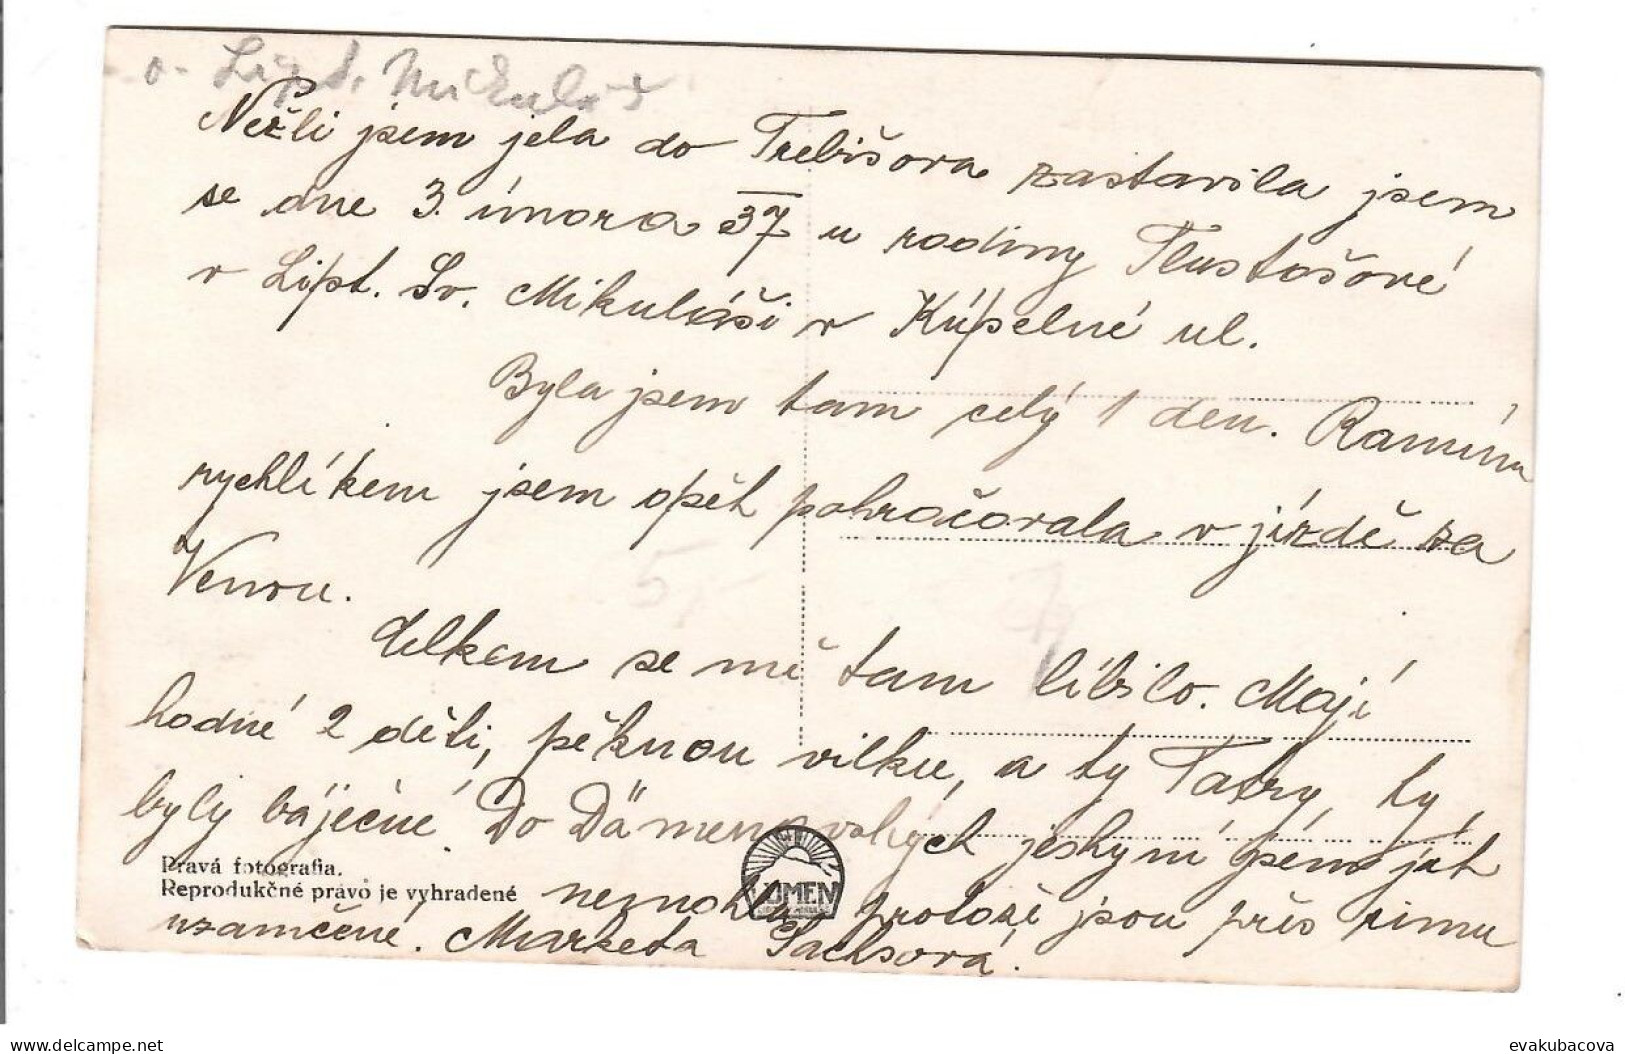 o. Lipt. Mikuláš
Nežli jsem jela do Trebišova zastavila jsem
se dne 3. února 37 u rodiny Tlustošové
v Lipt. Sv. Mikuláši v Kúpelné ul.
Byla jsem tam celý 1 den. Ranním
rychlíkem jsem opět pokračovala v jízdě za
Venou.
Celkem se mě tam líbilo. Mají
hodné 2 děti, pěknou vilku, a ty Tatry, ty
byly báječné. Do Dämenovských jeskyní jsem jít
nemohla protože jsou přes zimu
uzamčené. Marketa Sachsová.
5,-
Pravá fotografia.
Reprodukčné právo je vyhradené
LUMEN
delcampe.net
evakubacova